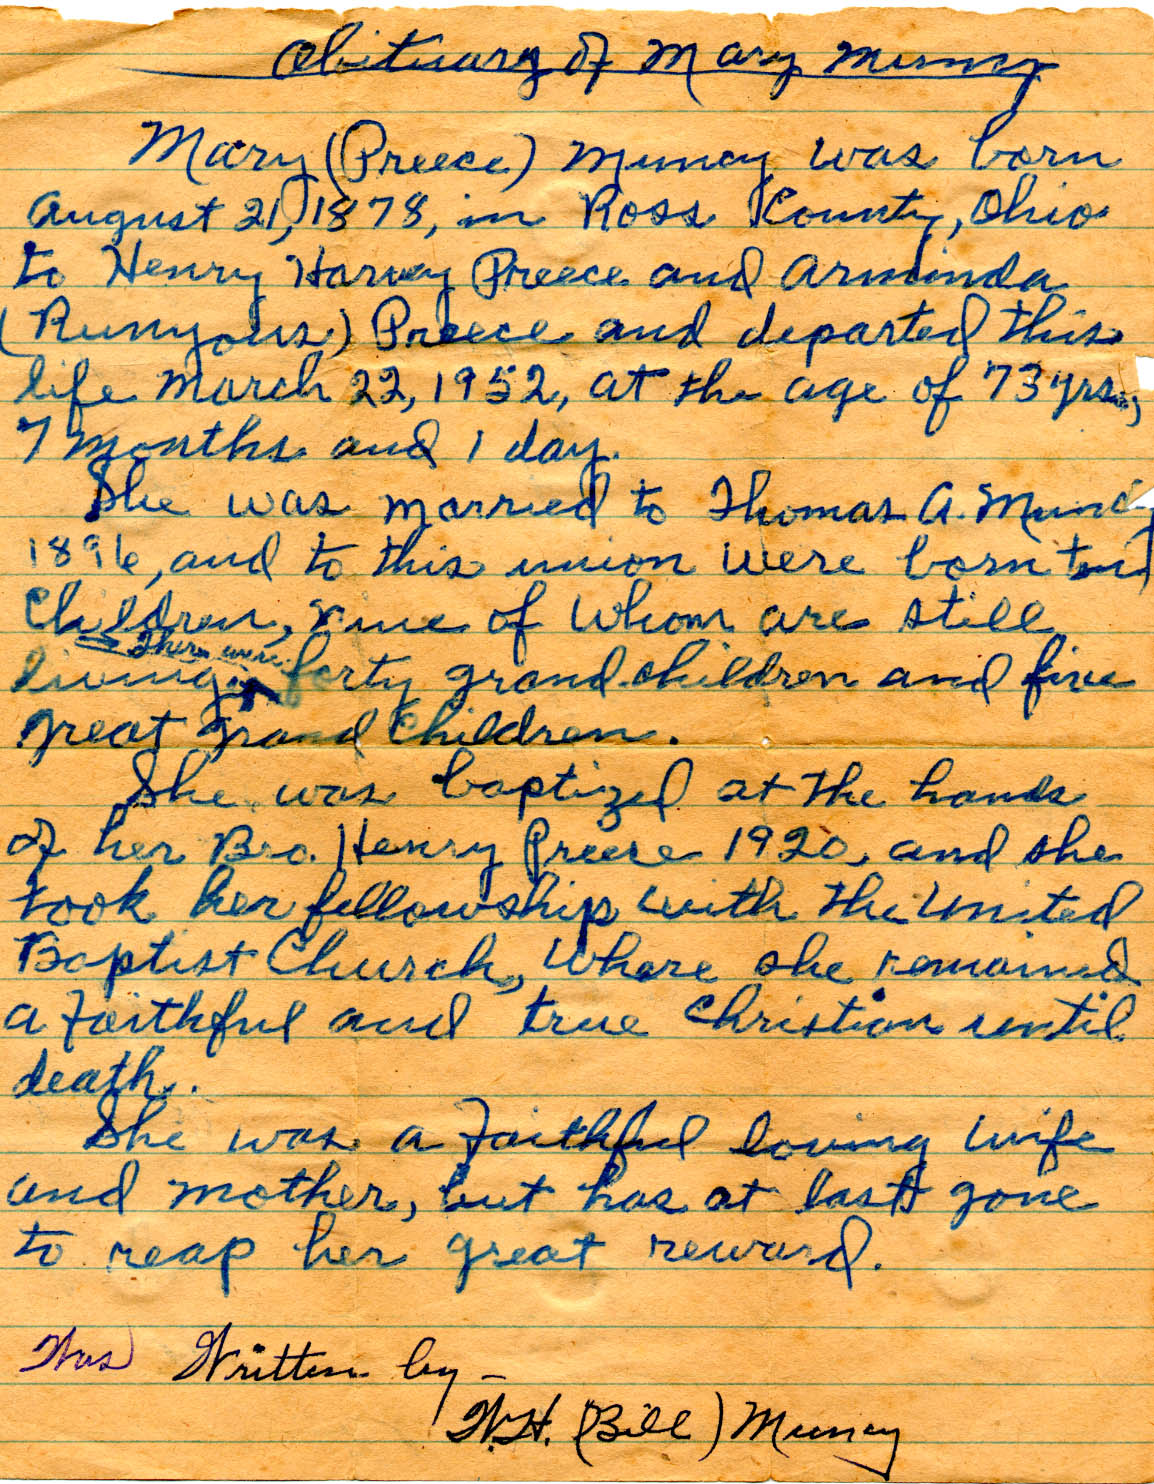 Obituary of Mary Muncy
Mary (Preece) Muncy was born
August 21, 1878, in Ross County, Ohio
to Henry Harvey Preece and Arminda
(Runyons) Preece and departed this
life March 22, 1952, at the age of 73 yrs,
7 months and 1 day.
She was married to Thomas A. Muncy
1896, and to this union were born ten
Children, nine of whom are still
There were
living, forty grand children and five
great grand Children.
She was baptized at the hands
of her Bro. Henry Preece 1920, and she
took her fellowship with the United
Baptist Church, where she remained
a faithful and true Christian until
death.
She was a faithful loving wife
and mother, but has at last gone
to reap her great reward.
Was Written by -
W.H. (Bill) Muncy